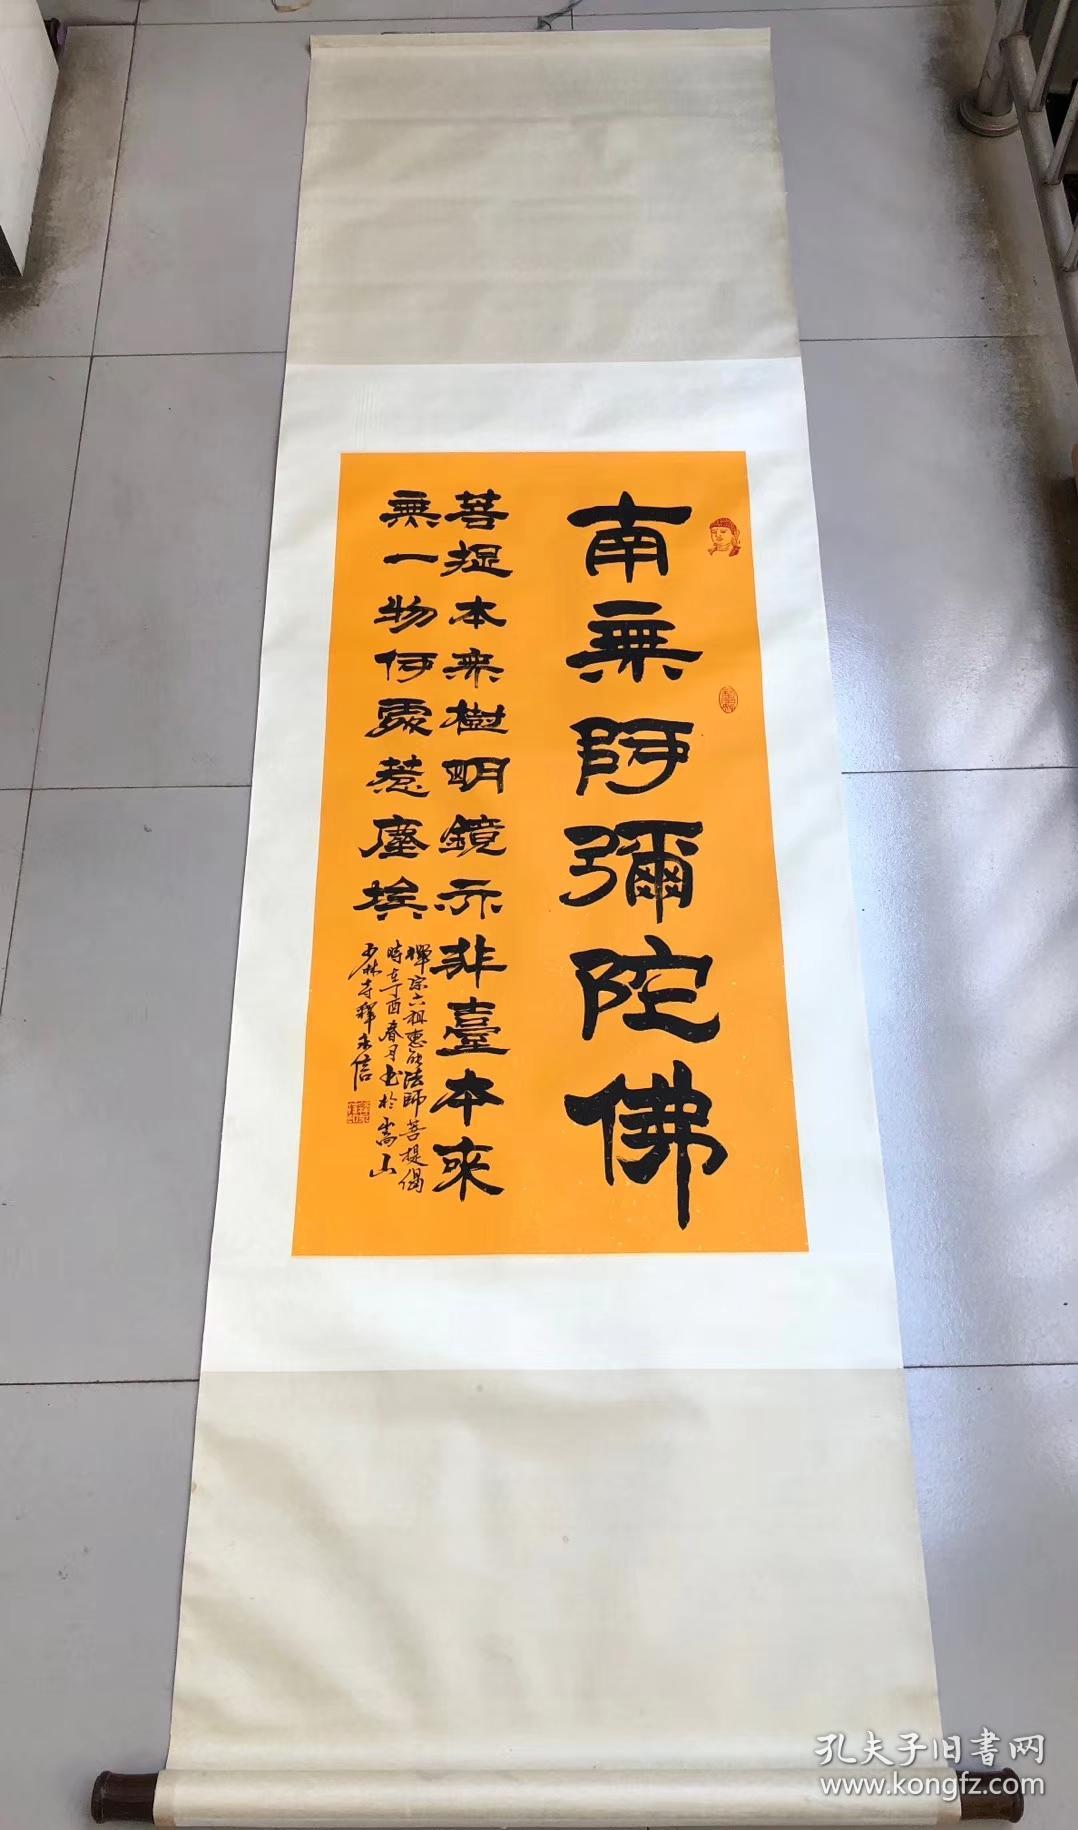 南無阿彌陀佛
菩提本無樹明鏡亦非臺本來
無一物何處惹塵埃
禪宗六祖惠能法師菩提偈
時在丁酉春月书於嵩山
少林寺釋永信
孔夫子旧書网
www.kongfz.com